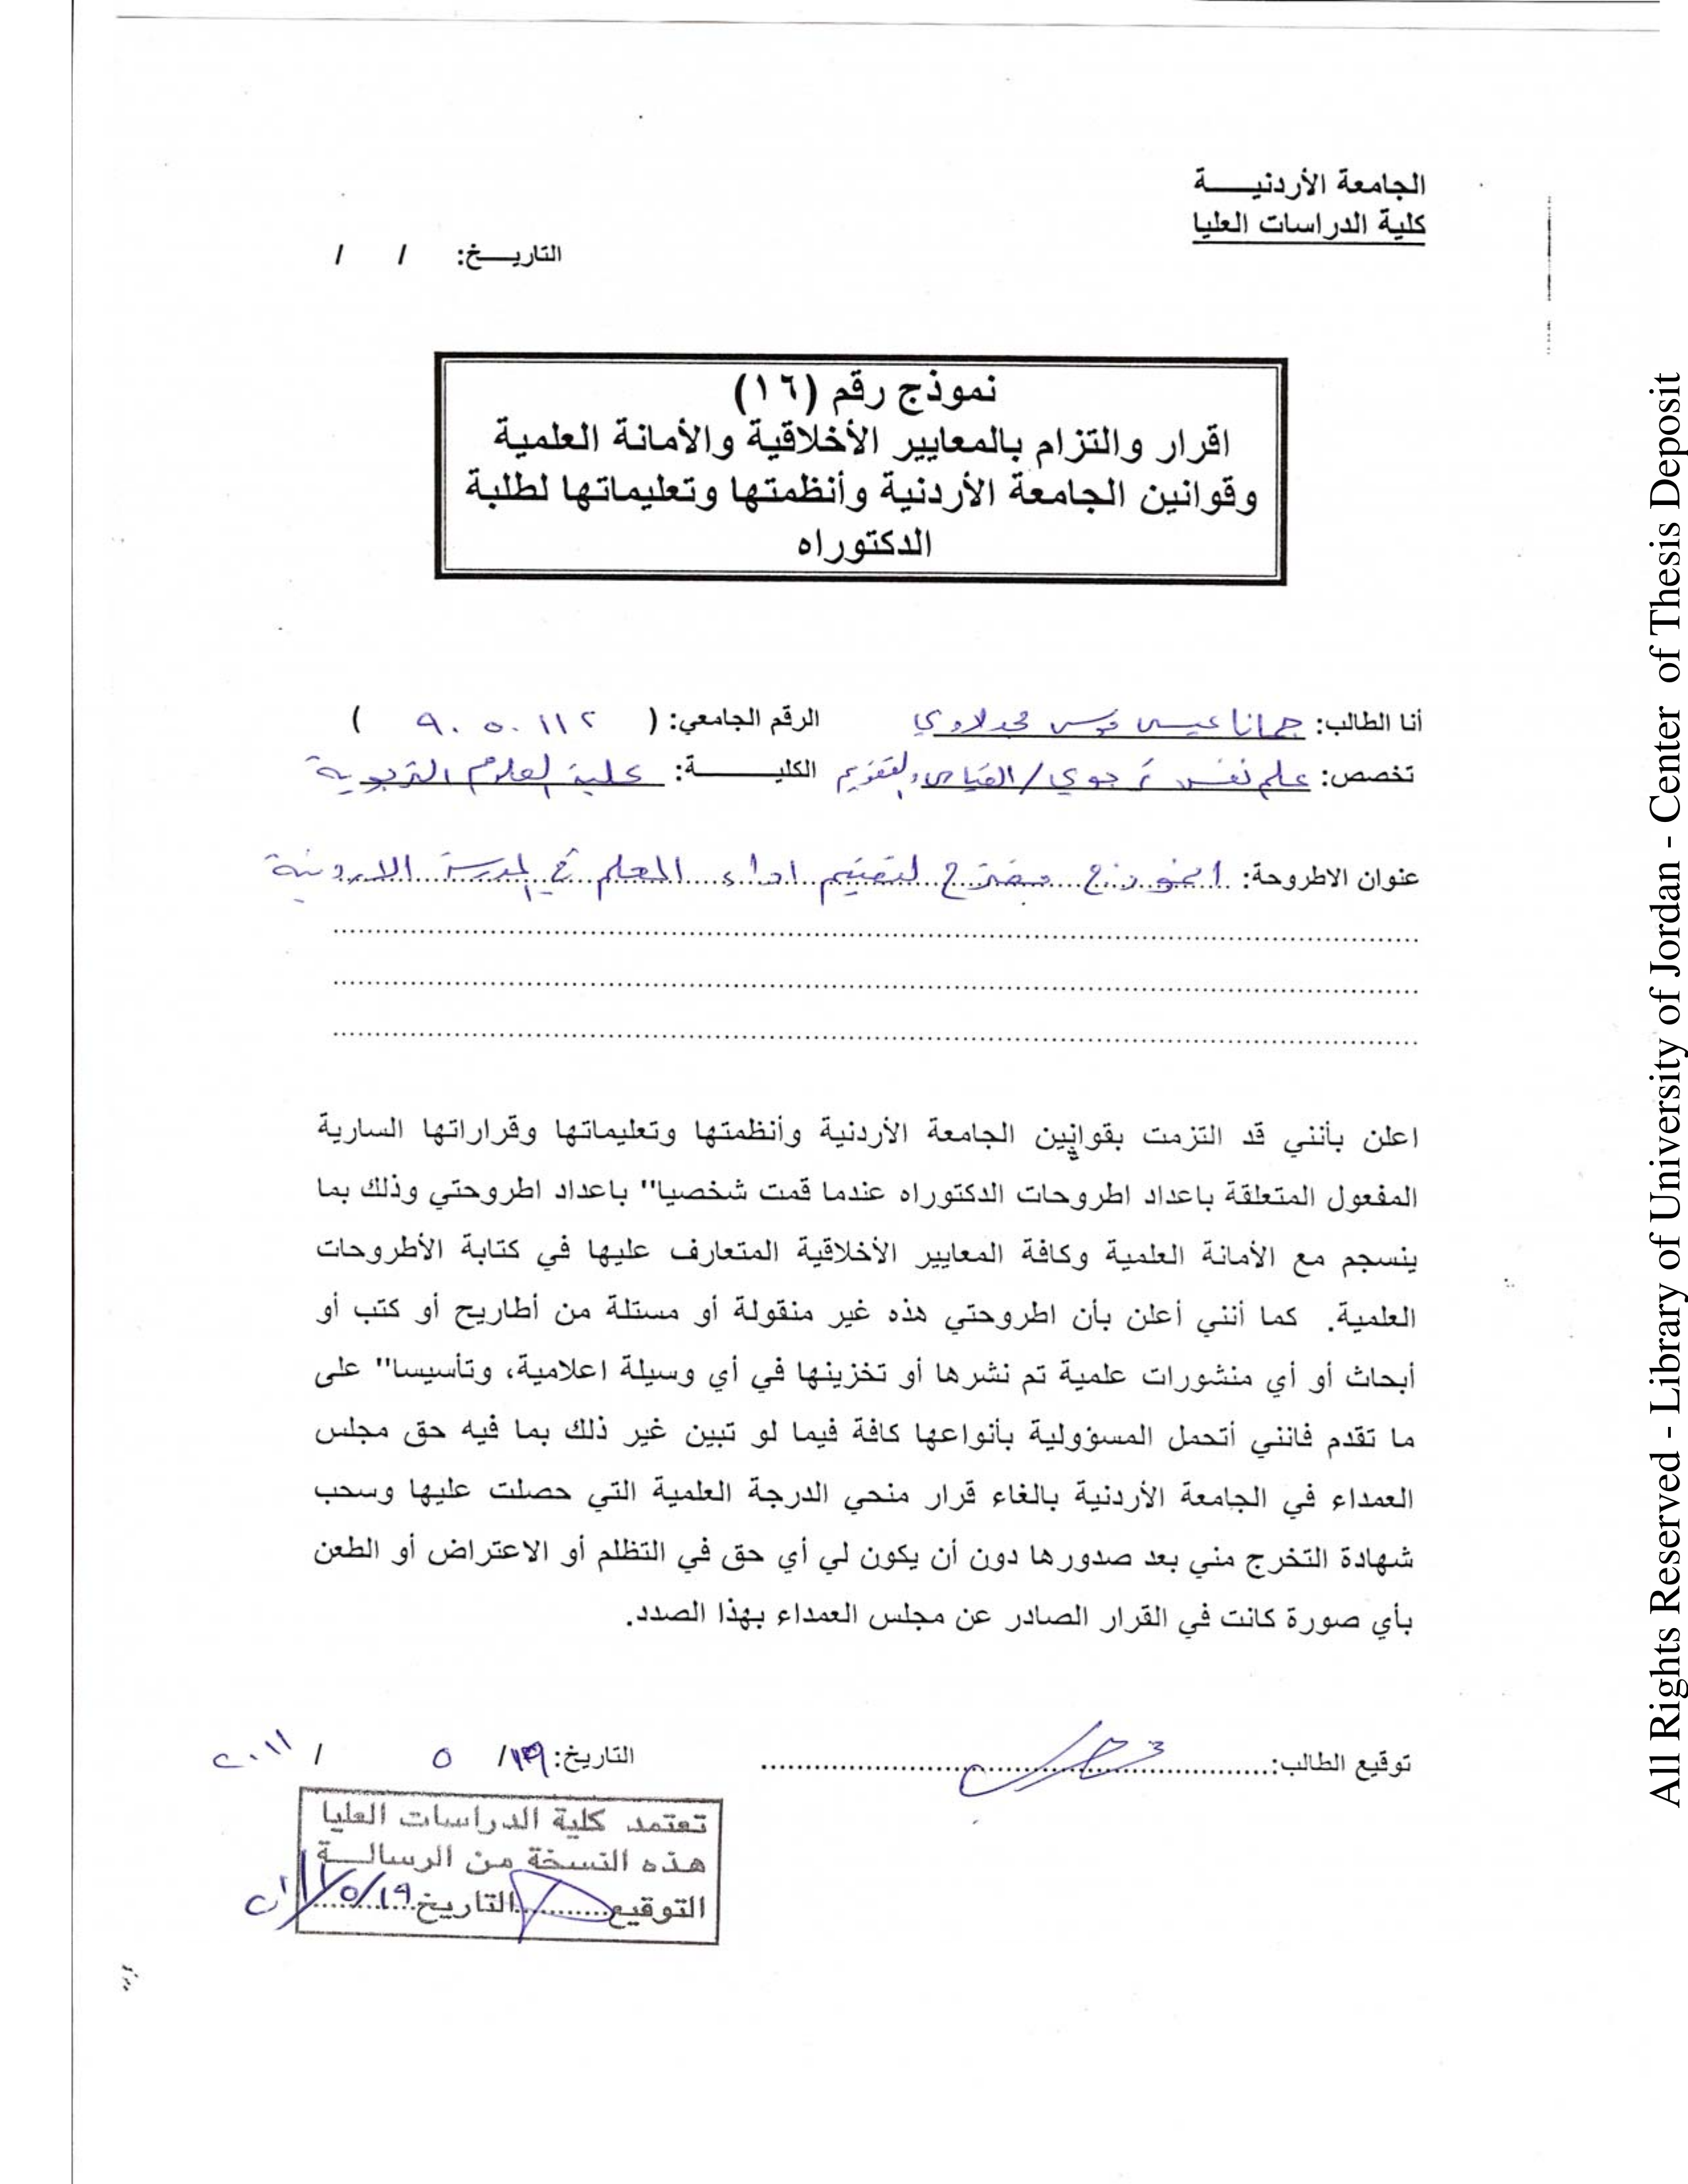 الجامعة الأردنيـــــة
كلية الدراسات العليا
التاريـــخ: / /
نموذج رقم (١٦)
اقرار والتزام بالمعايير الأخلاقية والأمانة العلمية
وقوانين الجامعة الأردنية وأنظمتها وتعليماتها لطلبة
الدكتوراه
أنا الطالب: جمانا عيسى موسى مجدلاوي الرقم الجامعي: ( ٩٠٥٠١١٢ )
تخصص: علم نفس تربوي / القياس والتقويم الكليـــــــة: كلية العلوم التربوية
عنوان الاطروحة: انموذج مقترح لتقييم اداء المعلم في المدرسة الاردنية
اعلن بأنني قد التزمت بقوانين الجامعة الأردنية وأنظمتها وتعليماتها وقراراتها السارية
المفعول المتعلقة باعداد اطروحات الدكتوراه عندما قمت شخصيا" باعداد اطروحتي وذلك بما
ينسجم مع الأمانة العلمية وكافة المعايير الأخلاقية المتعارف عليها في كتابة الأطروحات
العلمية. كما أنني أعلن بأن اطروحتي هذه غير منقولة أو مستلة من أطاريح أو كتب أو
أبحاث أو أي منشورات علمية تم نشرها أو تخزينها في أي وسيلة اعلامية، وتأسيسا" على
ما تقدم فانني أتحمل المسؤولية بأنواعها كافة فيما لو تبين غير ذلك بما فيه حق مجلس
العمداء في الجامعة الأردنية بالغاء قرار منحي الدرجة العلمية التي حصلت عليها وسحب
شهادة التخرج مني بعد صدورها دون أن يكون لي أي حق في التظلم أو الاعتراض أو الطعن
بأي صورة كانت في القرار الصادر عن مجلس العمداء بهذا الصدد.
توقيع الطالب: التاريخ: ١٩/ ٥ / ٢٠١١
تعتمد كلية الدراسات العليا
هذه النسخة من الرسالـــة
التوقيع التاريخ ١٩/٥/
All Rights Reserved - Library of University of Jordan - Center of Thesis Deposit